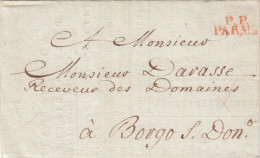 P. P.
PARME
A Monsieur
Monsieur Davasse
Receveur des Domaines
à Borgo S. Don.º